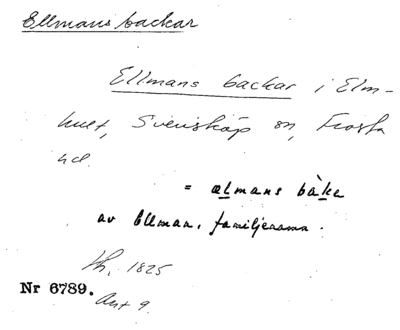 Ellmans backar
Ellmans backar i Elm-
hult, Svensköp sn, Frosta
hd.
= ælmans bàka
av Ellman, familjenamn.
1825
Nr 6789.
Ant 9.